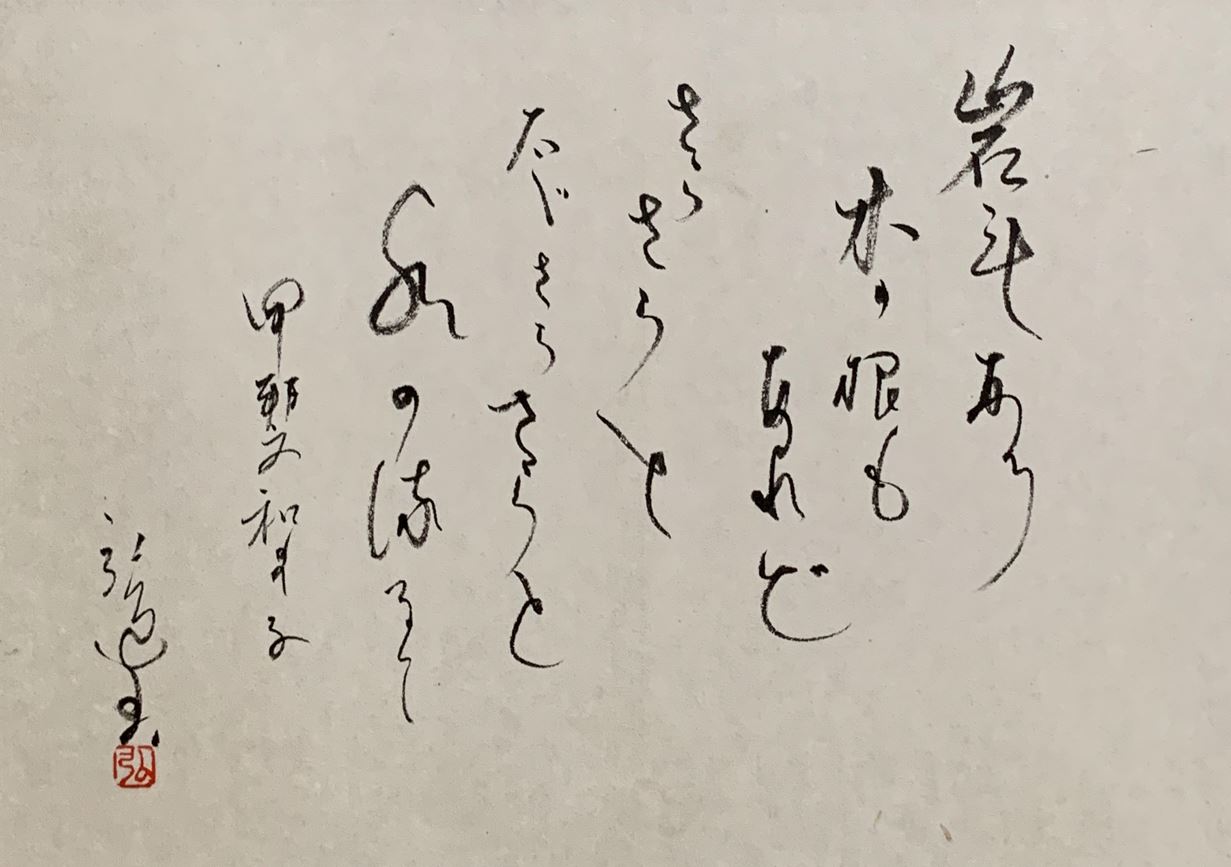 岩もあり
木の根も
あれど
さらさらと
たゞさらさらと
水の流るゝ
甲斐和里子
弘
弘